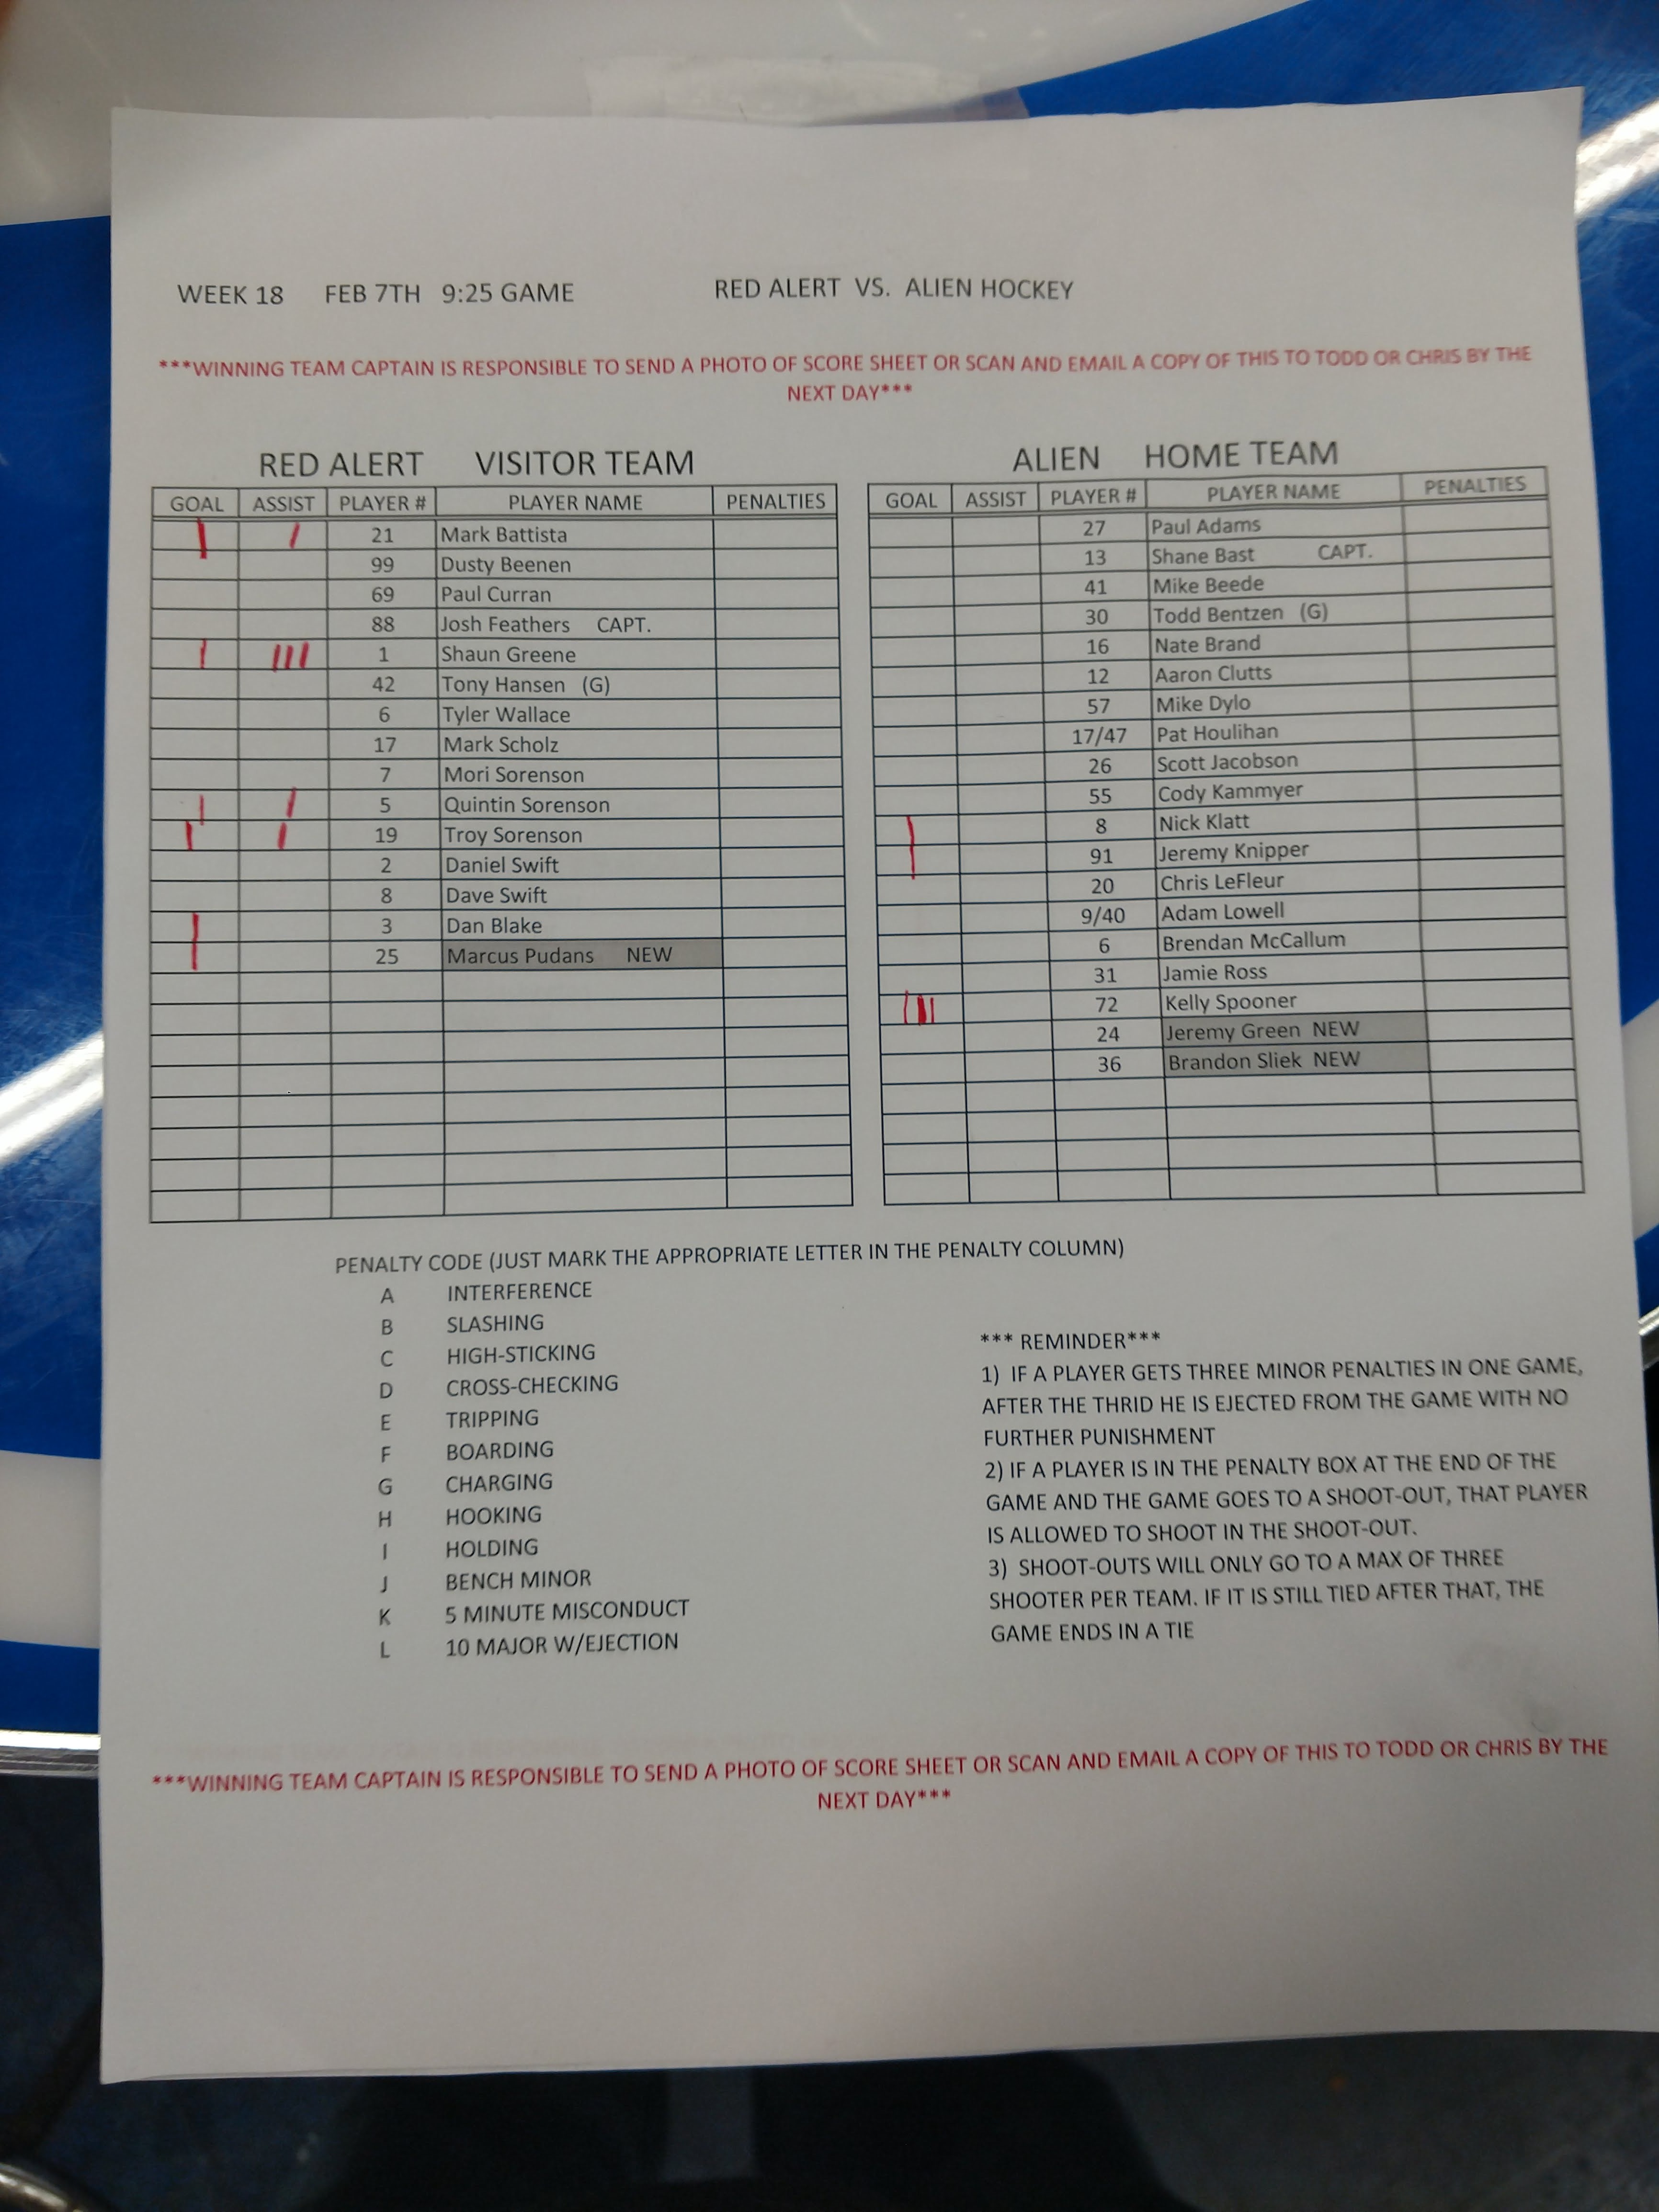 WEEK 18 FEB 7TH 9:25 GAME RED ALERT VS. ALIEN HOCKEY
***WINNING TEAM CAPTAIN IS RESPONSIBLE TO SEND A PHOTO OF SCORE SHEET OR SCAN AND EMAIL A COPY OF THIS TO TODD OR CHRIS BY THE
NEXT DAY***
RED ALERT VISITOR TEAM
GOAL ASSIST PLAYER # PLAYER NAME PENALTIES
21 Mark Battista
99 Dusty Beenen
69 Paul Curran
88 Josh Feathers CAPT.
1 Shaun Greene
42 Tony Hansen (G)
6 Tyler Wallace
17 Mark Scholz
7 Mori Sorenson
5 Quintin Sorenson
19 Troy Sorenson
2 Daniel Swift
8 Dave Swift
3 Dan Blake
25 Marcus Pudans NEW
ALIEN HOME TEAM
GOAL ASSIST PLAYER # PLAYER NAME PENALTIES
27 Paul Adams
13 Shane Bast CAPT.
41 Mike Beede
30 Todd Bentzen (G)
16 Nate Brand
12 Aaron Clutts
57 Mike Dylo
17/47 Pat Houlihan
26 Scott Jacobson
55 Cody Kammyer
8 Nick Klatt
91 Jeremy Knipper
20 Chris LeFleur
9/40 Adam Lowell
6 Brendan McCallum
31 Jamie Ross
72 Kelly Spooner
24 Jeremy Green NEW
36 Brandon Sliek NEW
PENALTY CODE (JUST MARK THE APPROPRIATE LETTER IN THE PENALTY COLUMN)
A INTERFERENCE
B SLASHING
C HIGH-STICKING
D CROSS-CHECKING
E TRIPPING
F BOARDING
G CHARGING
H HOOKING
I HOLDING
J BENCH MINOR
K 5 MINUTE MISCONDUCT
L 10 MAJOR W/EJECTION
*** REMINDER***
1) IF A PLAYER GETS THREE MINOR PENALTIES IN ONE GAME,
AFTER THE THRID HE IS EJECTED FROM THE GAME WITH NO
FURTHER PUNISHMENT
2) IF A PLAYER IS IN THE PENALTY BOX AT THE END OF THE
GAME AND THE GAME GOES TO A SHOOT-OUT, THAT PLAYER
IS ALLOWED TO SHOOT IN THE SHOOT-OUT.
3) SHOOT-OUTS WILL ONLY GO TO A MAX OF THREE
SHOOTER PER TEAM. IF IT IS STILL TIED AFTER THAT, THE
GAME ENDS IN A TIE
***WINNING TEAM CAPTAIN IS RESPONSIBLE TO SEND A PHOTO OF SCORE SHEET OR SCAN AND EMAIL A COPY OF THIS TO TODD OR CHRIS BY THE
NEXT DAY***